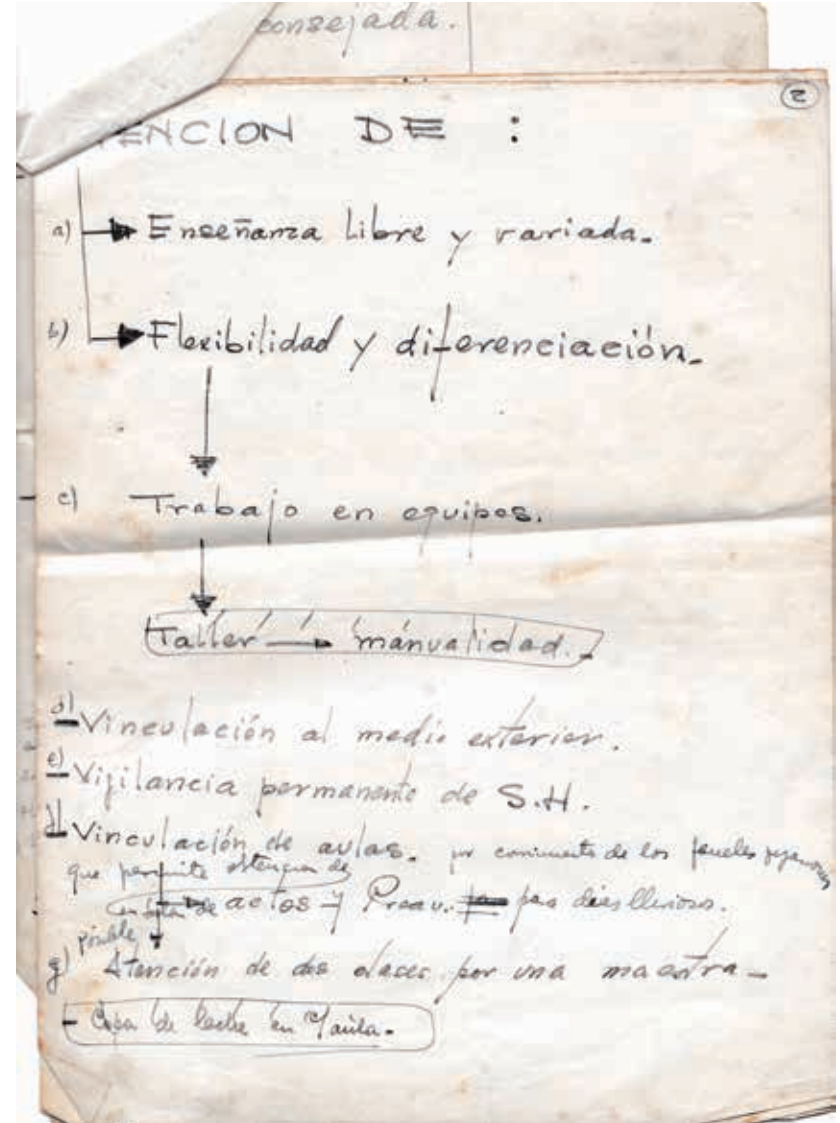 consejada.
2
ENCION DE :
a) Enseñanza libre y variada.
b) Flexibilidad y diferenciación.
c) Trabajo en equipos.
Taller → manualidad.
d) Vinculación al medio exterior.
e) Vigilancia permanente de S.H.
Vinculación de aulas. por de los
que permite obtencion de
de actos y para dias lluviosos.
posible
g) Atención de dos clases por una maestra
- Copa de leche en c/aula.